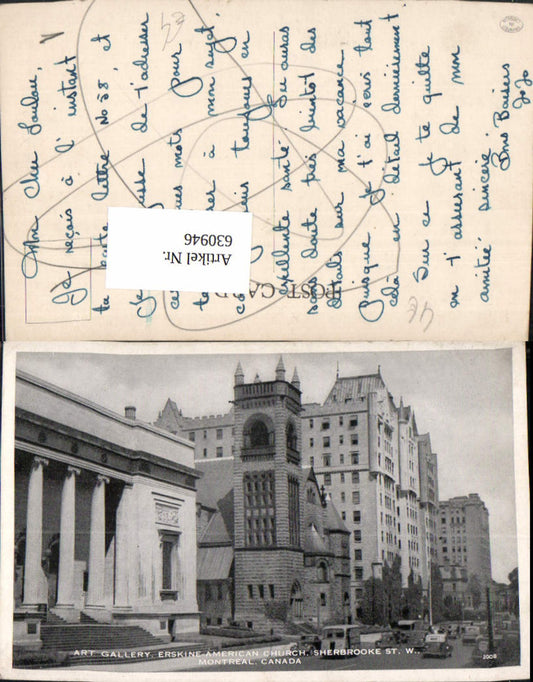 Mon cher Loulou,
Je reçois à l'instant
ta carte lettre No 58, et
Je de t'adresser
ces mots pour
à mon sujet.
toujours en
excellente santé. Tu auras
sans doute très bientôt des
détails sur ma vacance
puisque je t'ai écris tout
cela en détail dernièrement.
Sur ce je te quitte
en t'assurant de mon
amitié sincère.
Bons Baisers
Jo Jo
4€
POST CARD
Artikel Nr.
630946
ART GALLERY, ERSKINE-AMERICAN CHURCH, SHERBROOKE ST. W.,
MONTREAL, CANADA
2008